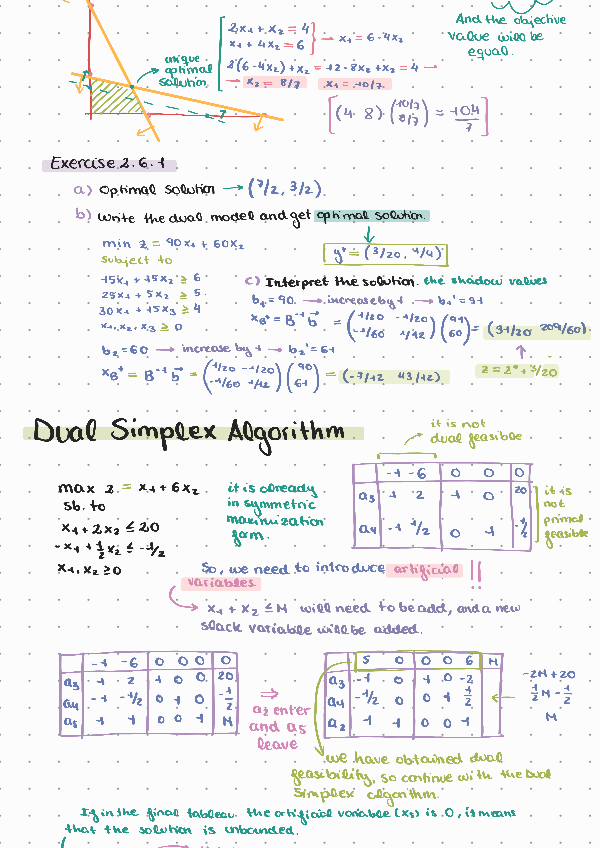 2x1 + x2 = 4
x1 + 4x2 = 6
→ x1 = 6 - 4x2
2(6-4x2) + x2 = 12 - 8x2 + x2 = 4 →
→ x2 = 8/7 x1 = 10/7
(4 · 8) · (10/7 8/7) = 104/7
And the objective
value will be
equal.
unique
optimal
solution
Exercise 2.6.1
a) Optimal solution → (7/2, 3/2)
b) Write the dual model and get optimal solution
min z = 90x1 + 60x2
subject to
15x1 + 15x2 ≥ 6
25x1 + 5x2 ≥ 5
30x1 + 15x3 ≥ 4
x1, x2, x3 ≥ 0
y* = (3/20, 1/4)
c) Interpret the solution. the shadow values
b1 = 90 → increase by 1 → b1' = 91
xB* = B^-1 b = (1/20 -1/20 -1/60 1/12) (91 60) = (31/20 209/60)
z = z* + 3/20
b2 = 60 → increase by 1 → b2' = 61
xB* = B^-1 b = (1/20 -1/20 -1/60 1/12) (90 61) = (-7/12 43/12)
Dual Simplex Algorithm
max z = x1 + 6x2
sb. to
x1 + 2x2 ≤ 20
-x1 + 1/2 x2 ≤ -1/2
x1, x2 ≥ 0
it is already
in symmetric
maximization
form.
it is not
dual feasible
-1 -6 0 0 0
a3 1 2 1 0 20
a4 -1 1/2 0 1 -1/2
it is
not
primal
feasible
So, we need to introduce artificial !!
variables
x1 + x2 ≤ M will need to be add, and a new
slack variable will be added.
-1 -6 0 0 0 0
a3 -1 2 1 0 0 20
a4 -1 -1/2 0 1 0 -1/2
a5 1 1 0 0 1 M
⇒
a2 enter
and a5
leave
5 0 0 0 6 M
a3 -1 0 1 0 -2
a4 -1/2 0 0 1 1/2
a2 1 1 0 0 1
←
-2M + 20
1/2 M - 1/2
M
we have obtained dual
feasibility, so continue with the Dual
Simplex algorithm.
If in the final tableau the artificial variable (x5) is 0, it means
that the solution is unbounded.